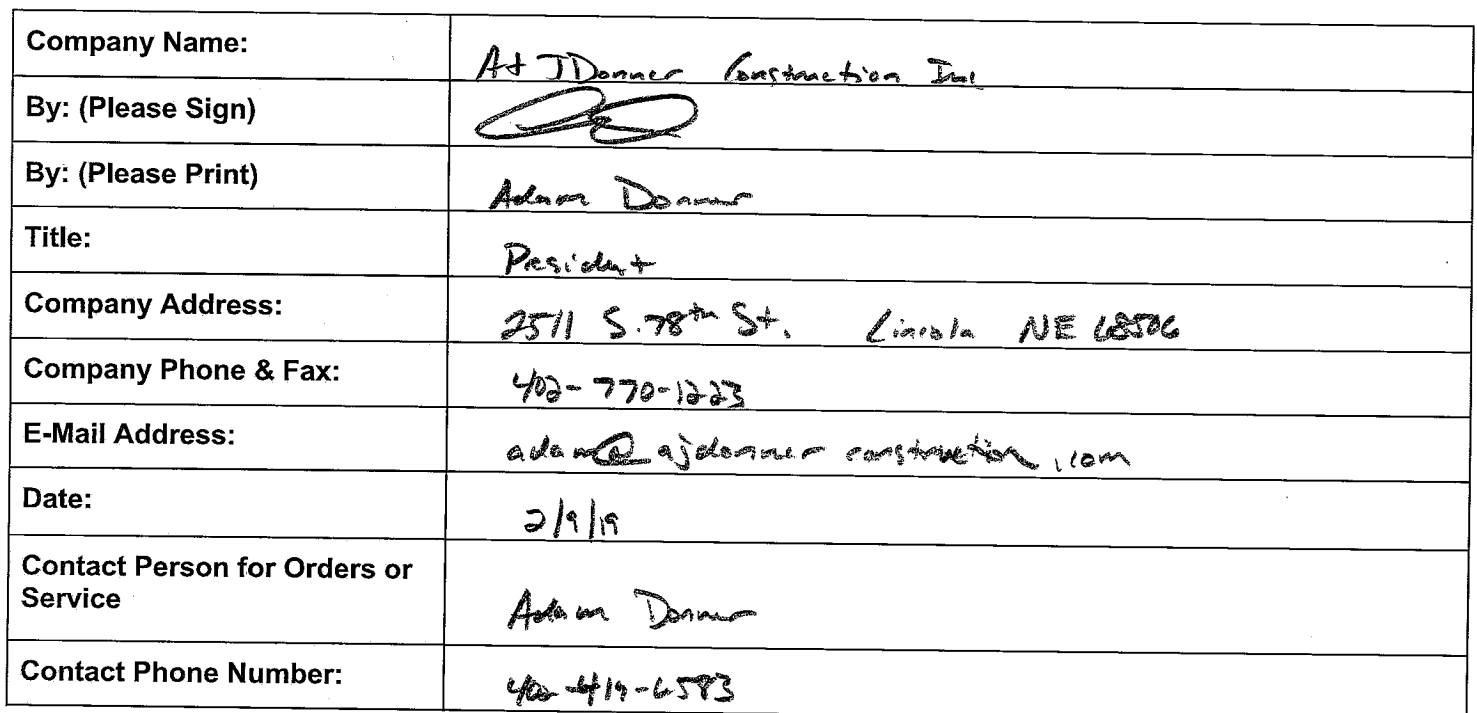 Company Name: A+J Donner Construction Inc
By: (Please Sign)
By: (Please Print) Adam Donner
Title: President
Company Address: 2511 S. 78th St. Lincoln NE 68506
Company Phone & Fax: 402-770-1223
E-Mail Address: adam@ajdonnerconstruction.com
Date: 2/9/19
Contact Person for Orders or
Service Adam Donner
Contact Phone Number: 402-419-6583